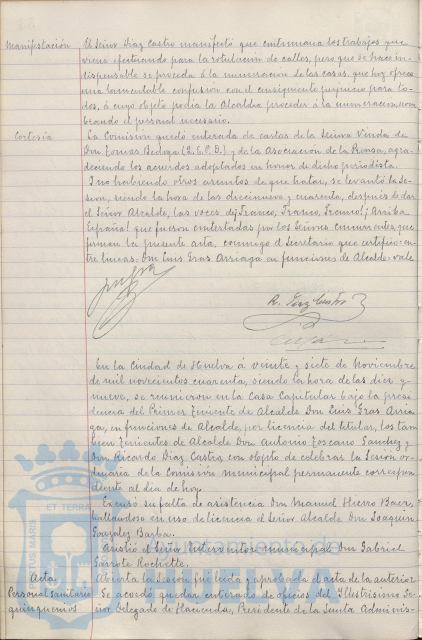 Manifestación El Señor Diaz Castro manifestó que continuaba los trabajos que
viene efectuando para la rotulación de calles, pero que se hace in-
dispensable se proceda á la numeracion de las casas, que hoy ofrece
una lamentable confusion con el consiguiente perjuicio para to-
dos, á cuyo objeto podia la Alcaldia proceder á la numeracion, nom
brando el personal necesario.
Cortesía La Comision quedó enterada de cartas de la Señora Viuda de
Don Tomas Bedoya (Q.E.P.D.) y de la Asociacion de la Prensa, agra-
deciendo los acuerdos adoptados en honor de dicho periodista.
Y no habiendo otros asuntos de que tratar, se levantó la Se-
sion, siendo la hora de las diecinueve y cuarenta, despues de dar
el Señor Alcalde, las voces de ¡Franco, Franco, Franco! ¡Arriba
España! que fueron contestadas por los Señores concurrentes, que
firman la presente acta, conmigo el Secretario que certifico=en-
tre lineas=Don Luis Gras Arriaga en funciones de Alcalde=vale
R. Diaz Castro
En la Ciudad de Huelva á veinte y siete de Noviembre
de mil novecientos cuarenta, siendo la hora de las diez y
nueve, se reunieron en la Casa Capitular bajo la presi
dencia del Primer Teniente de Alcalde Don Luis Gras Arria
ga, en funciones de Alcalde, por licencia del titular, los tam
bien Tenientes de Alcalde Don Antonio Toscano Sanchez y
Don Ricardo Diaz Castro, con objeto de celebrar la Sesion or-
dinaria de la Comisión municipal permanente correspon
diente al dia de hoy.
Excusó su falta de asistencia Don Manuel Hierro Baer,
hallandose en uso de licencia el Señor Alcalde Don Joaquin
Gonzalez Barba.
Asistió el Señor Interventor municipal Don Gabriel
Garrote Rochette.
Acta Abierta la Sesion, fué leida y aprobada el acta de la anterior
Personal sanitario Se acordó quedar enterado de oficios del Illustrisimo Se-
quinquenios ñor Delegado de Hacienda, Presidente de la Junta Adminis-
ET TERRÆ
PORTUS MARIS
Ayuntamiento de
HUELVA